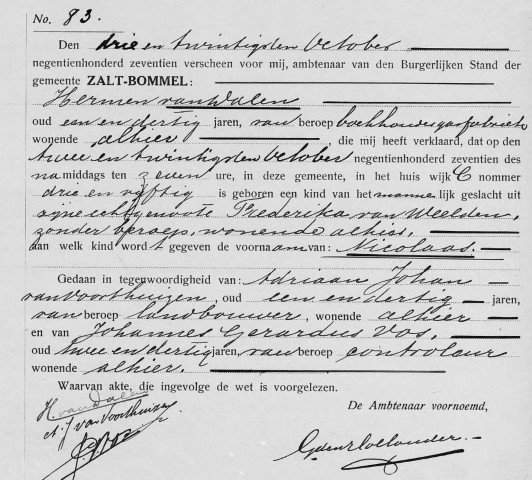 No. 83.
Den drie en twintigsten October
negentienhonderd zeventien verscheen voor mij, ambtenaar van den Burgerlijken Stand der
gemeente ZALT-BOMMEL:
Hermen van Dalen
oud een en dertig jaren, van beroep boekhouder gasfabriek
wonende alhier die mij heeft verklaard, dat op den
twee en twintigsten October negentienhonderd zeventien des
na middags ten zeven ure, in deze gemeente, in het huis wijk C nommer
drie en vijftig is geboren een kind van het manne lijk geslacht uit
zijne echtgenoote Frederika van Weelden,
zonder beroep, wonende alhier,
aan welk kind wordt gegeven de voornaam van: Nicolaas.
Gedaan in tegenwoordigheid van: Adriaan Johan
van Voorthuizen, oud een en dertig jaren,
van beroep landbouwer, wonende alhier
en van Johannes Gerardus Vos,
oud twee en dertig jaren, van beroep controleur
wonende alhier.
Waarvan akte, die ingevolge de wet is voorgelezen.
H van Dalen
A. J van Voorthuizen
De Ambtenaar voornoemd,
JGVos